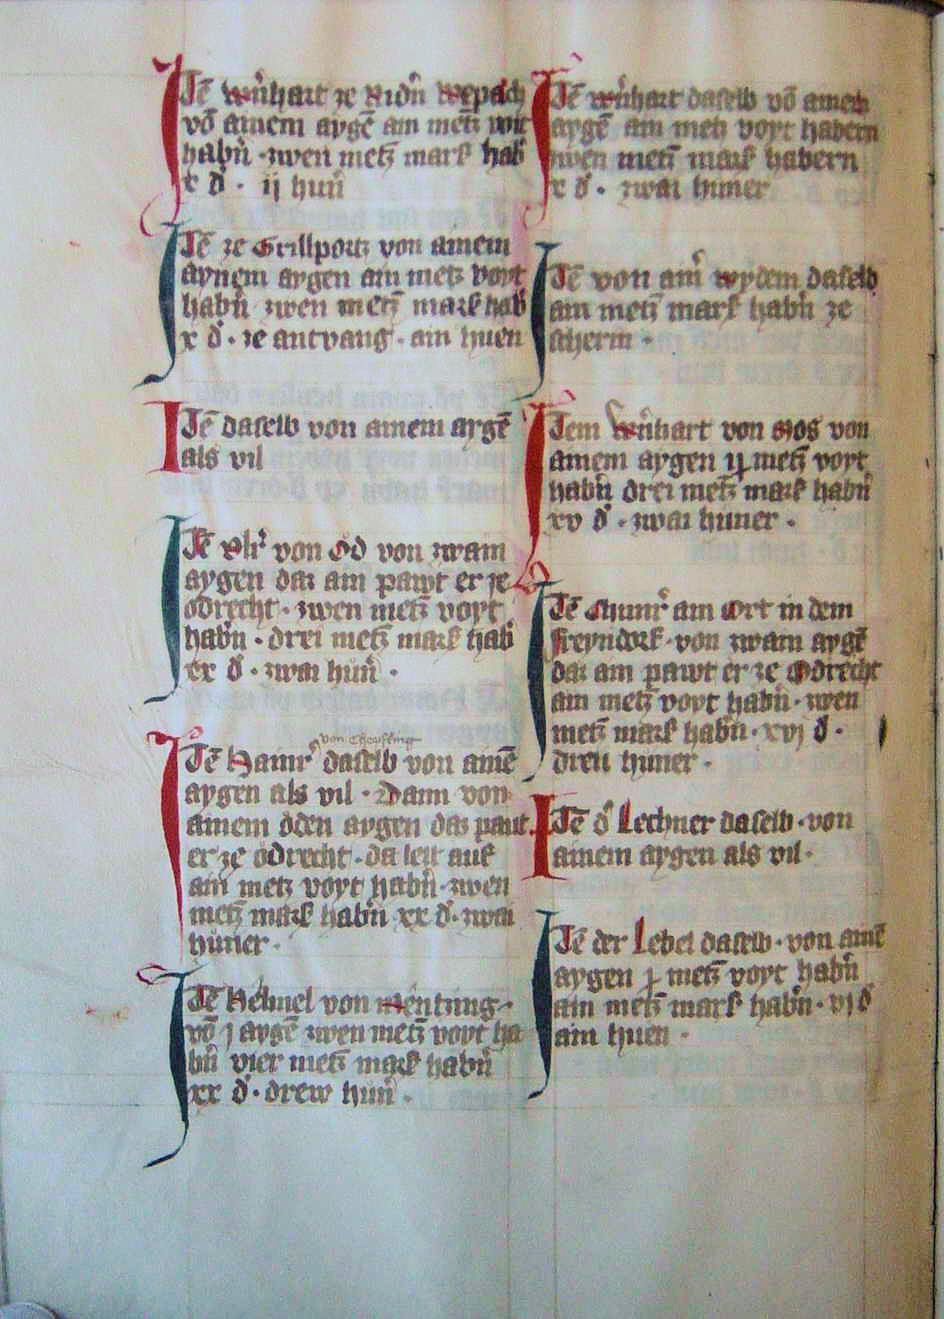 Itē Wernhart ze Nidn̄ Wepach
vō ainem aygē ain metz voyt
habn̄ · zwen metz̄ mark hab̄
x d̄ · ij hun̄
Itē ze Grillportz von ainem
aynem aygen ain metz voyt
habn̄ zwen metz̄ mark hab̄
x d̄ · ze antvang · ain huen
Itē daselb von ainem aygē
als vil
Itē Vlr̄ von Ǒd von zwain
aygen daz ain pawt er ze
ǒdrecht · zwen metz̄ voyt
habn̄ · drei metz̄ mark hab̄
xx d̄ · zwai hun̄ ·
von Cheusking
Itē Hainr̄ daselb von ainē
aygen als vil · Dann von
ainem ǒden aygen daz paut
er ze ǒdrecht · da leit auf
ain metz voyt habn̄ · zwen
metz̄ mark habn̄ xx d̄ · zwai
huner ·
Itē Helmel von Menting ·
vō j aygē zwen metz̄ voyt ha
bn̄ vier metz̄ mark habn̄
xx d̄ · drew hun̄ ·
Itē Wernhart daselb vō ainem
aygē ain metz voyt habern
zwen metz̄ mark habern
x d̄ · zwai huner
Itē von aīn̄ wydem daselb
ain metz̄ mark habn̄ ze
aherm ·
Item Wernhart von Mos von
ainem aygen metz̄ voyt
habn̄ drei metz̄ mark habn̄
xv d̄ · zwai huner ·
Itē Chunr̄ am Ort in dem
Freyndorf · von zwain aygē
daz ain pawt er ze Ǒdrecht
ain metz̄ voyt habn̄ · zwen
metz̄ mark habn̄ · xvj d̄ ·
dreu huner ·
Itē d̄ Lechner daselb · von
ainem aygen als vil ·
Itē der Lebel daselb · von ainē
aygen metz̄ voyt habn̄
ain metz̄ mark habn̄ · vj d̄
ain huen ·